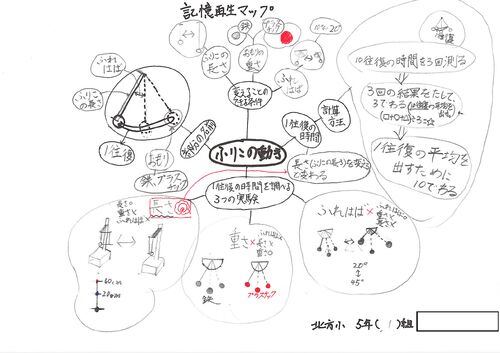 記憶再生マップ
鉄
プラスチック
10°〜20°
ふりこの長さ
おもりの重さ
ふれはば
変えることのできる条件
計算方法
1往復の時間
ふりこの動き
各部分の名前
ふれはば
ふりこの長さ
1往復
おもり
鉄、プラスチック
1往復
10往復の時間を3回測る
3回の結果をたして、
3でわる
(□+□+□)÷3=☆
1往復の平均を
出すために
10でわる
長さ(ふりこの長さ)を変えると変わる
1往復の時間を調べる
3つの実験
長さ
長さ○
重さ×
ふれはば×
40cm
20cm
重さ×
ふれはば×
長さ×
重さ○
鉄
プラスチック
ふれはば×
ふれはば○
重さ×
長さ×
20°
45°
北方小 5年(1)組